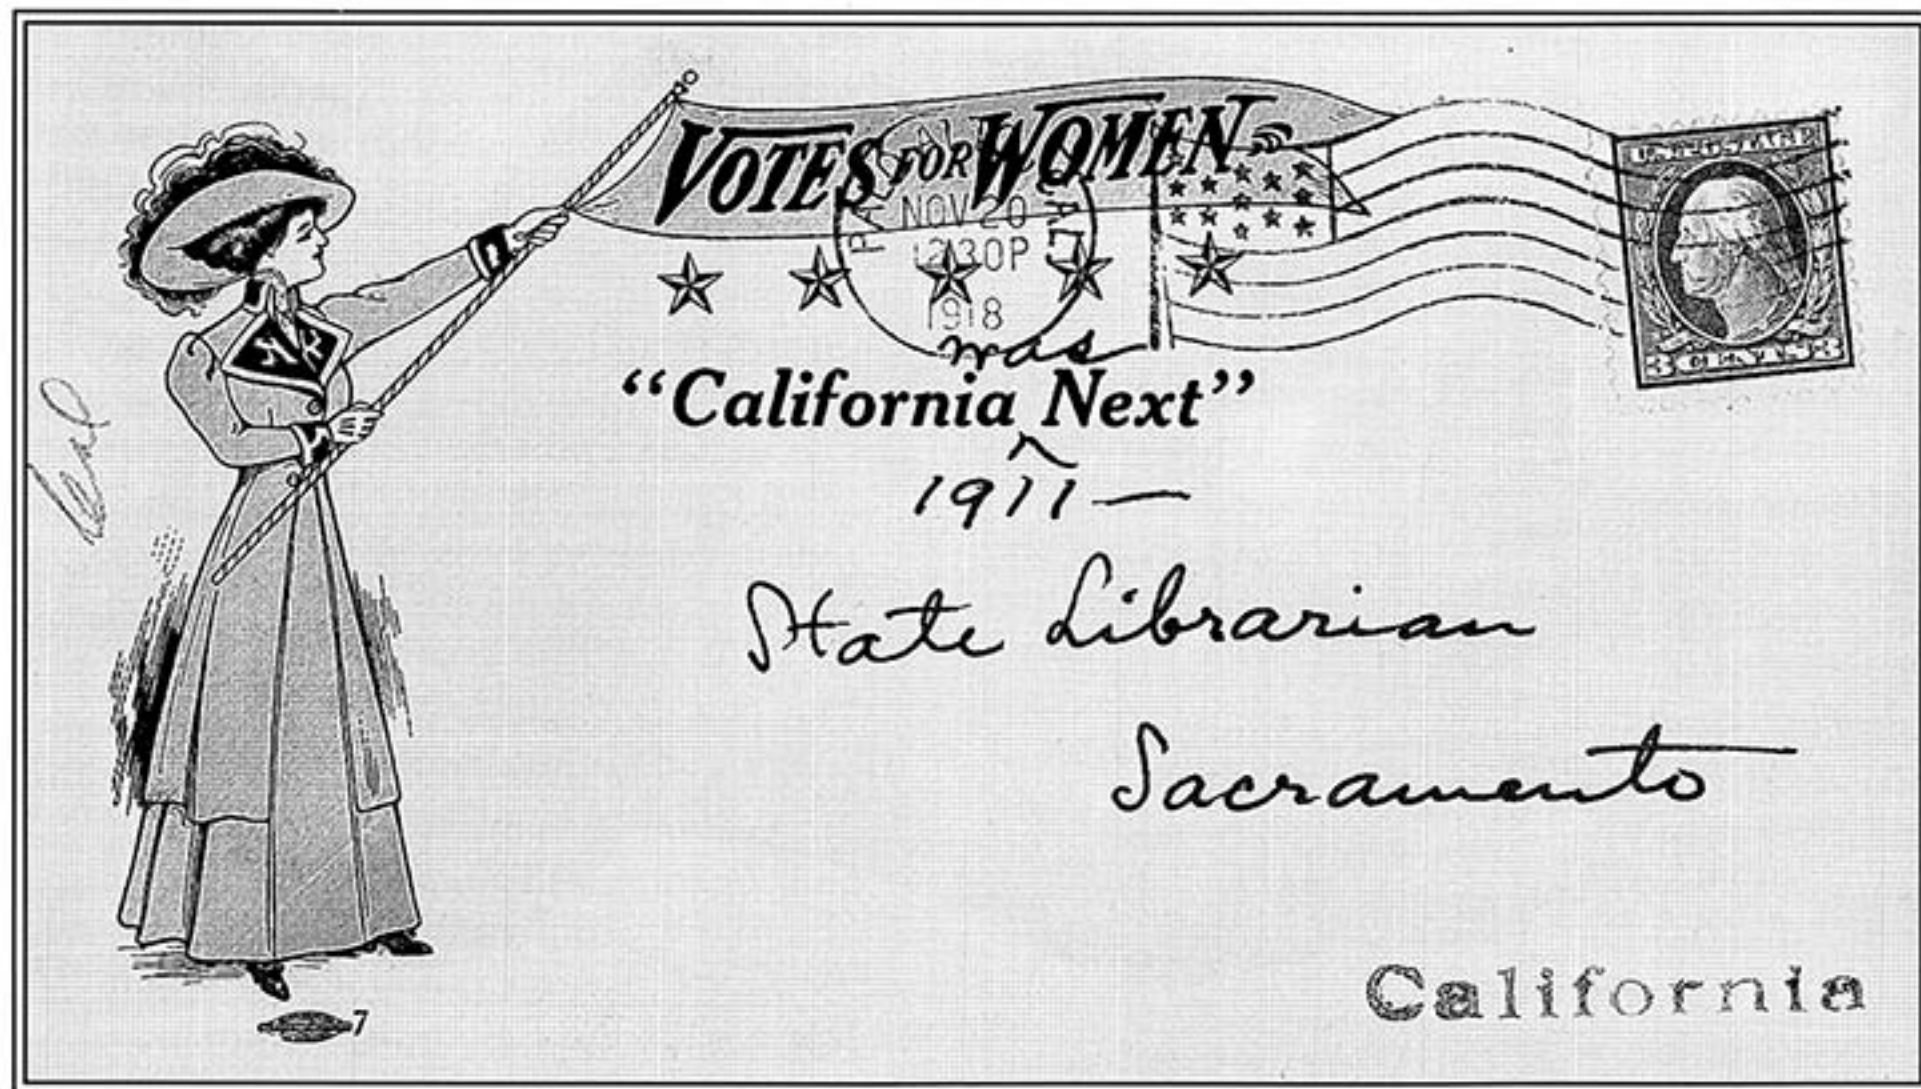 VOTES FOR WOMEN
NOV 20
12 30 P
1918
U.S. POSTAGE
3 CENTS 3
was
"California Next"
1911 —
State Librarian
Sacramento
California
Cal
7